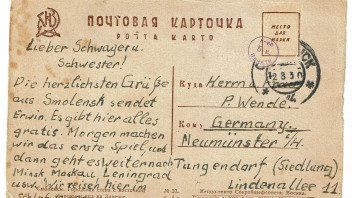 ПОЧТОВАЯ КАРТОЧКА
POŜTA KARTO
МЕСТО
ДЛЯ
МАРКИ
Lieber Schwager u.
Schwester!
Die herzlichsten Grüße
aus Smolensk sendet
Erwin. Es gibt hier alles
gratis. Morgen machen
wir das erste Spiel, und
dann geht es weiter nach
Minsk Moskau Leningrad
usw. Wir reisen hier im
12 8 3 0
Куда
Herrn
P. Wende
Кому
Germany
Neumünster i/H.
Tungendorf (Siedlung)
Lindenallee 11
№ 23.